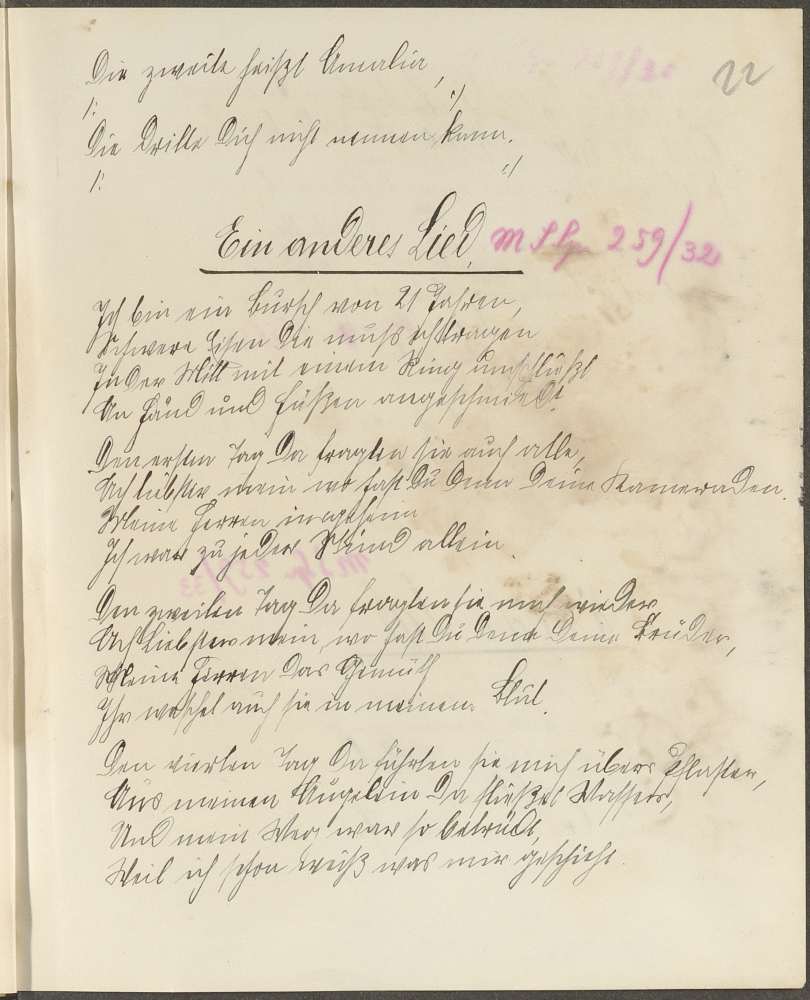 22
Die zweite heißt Amalia,
/: :/
Die Dritte Dich nicht nennen kann.
/: :/
Ein anderes Lied. 259/32
Ich bin ein Bursch von 21 Jahren,
Schwere Eisen die muß ich tragen
In der Mitt mit einem Ring umschließt
An Händ und Füßen angeschmiedt.
Den ersten Tag Da fragten sie auch alle,
Ach liebster mein wo hast Du denn Deine Kameraden.
Meine Herren insgeheim
Ich war zu jeder Stund allein.
Den zweiten Tag Da fragten sie mich wieder,
Ach Liebster mein, wo hast Du denn Deine Brüder,
Meine Herren das Gemüth
Ihr waschet auch sie in meinem Blut.
Den vierten Tag Da führten sie mich übers Pflaster,
Aus meinen Äugelein Da fließet Wasser,
Und mein Weg war so betrübt,
Weil ich schon weiß was mir geschieht.